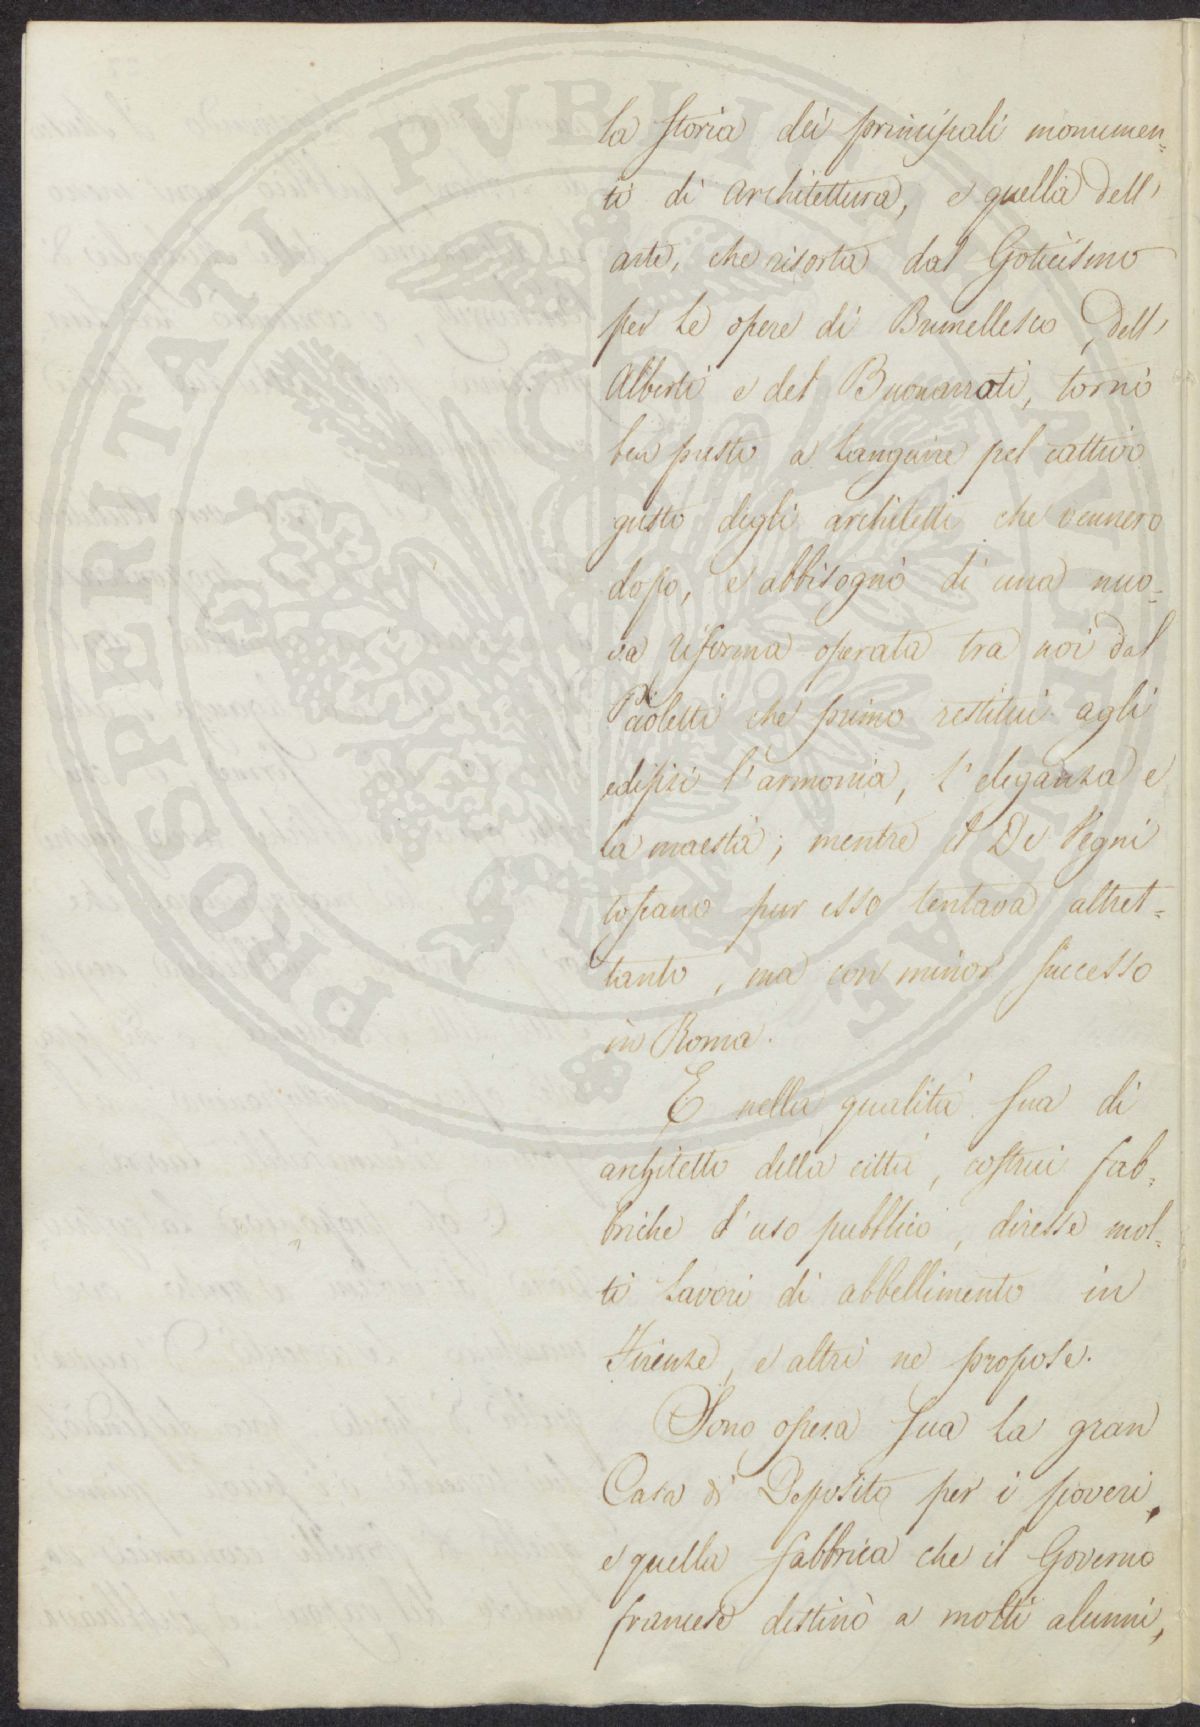 la storia dei principali monumen=
ti di architettura, e quella dell'
arte, che risorta dal Goticismo
per le opere di Brunellesco, dell'
Alberti e del Buonarroti, tornò
ben presto a languire pel cattivo
gusto degli architetti che vennero
dopo, e abbisognò di una nuo=
va riforma operata tra noi dal
Paoletti che primo restituì agli
edifizi l'armonia, l'eleganza e
la maestà; mentre il De Vegni
toscano pur esso tentava altret=
tanto, ma con minor successo
in Roma.
E nella qualità sua di
architetto della città, costruì fab=
briche d'uso pubblico, diresse mol=
ti lavori di abbellimento in
Firenze, e altri ne propose.
Sono opera sua la gran
Casa di Deposito per i poveri,
e quella fabbrica che il Governo
francese destinò a molti alunni,
PROSPERITATI PVBLICAE AVGENDAE